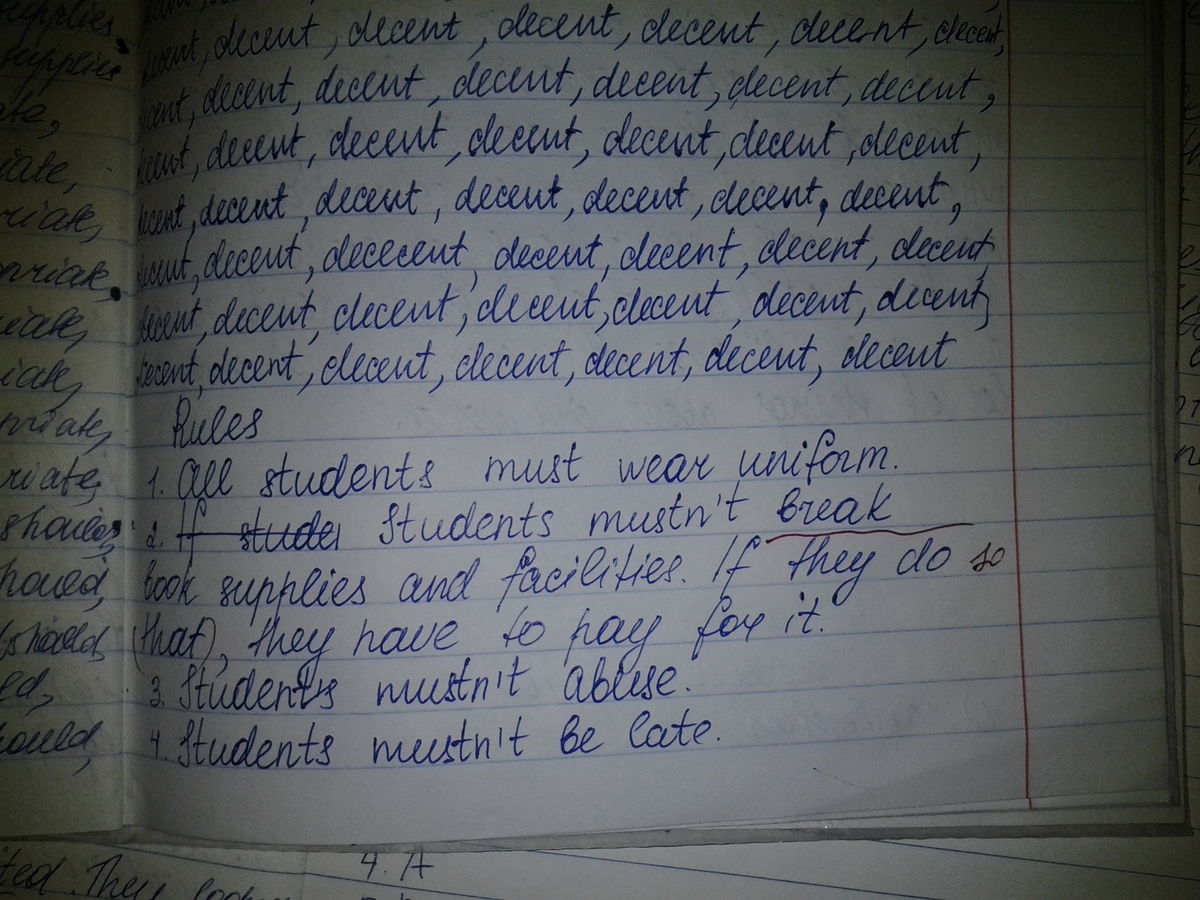 decent, decent, decent, decent, decent, decent, decent,
decent, decent, decent, decent, decent, decent, decent,
decent, decent, decent, decent, decent, decent, decent,
decent, decent, decent, decent, decent, decent, decent,
decent, decent, dececent, decent, decent, decent, decent,
decent, decent, decent, decent, decent, decent, decent,
decent, decent, decent, decent, decent, decent, decent
Rules
1. All students must wear uniform.
2. If studen Students mustn't break
book supplies and facilities. If they do so
(that), they have to pay for it.
3. Students mustn't abuse.
4. Students mustn't be late.
supplies,
supplies
ate,
iate,
riate,
priate,
iate,
iate,
priate,
riate,
should,
hould,
should,
ed,
hould,
ted. They
4. A